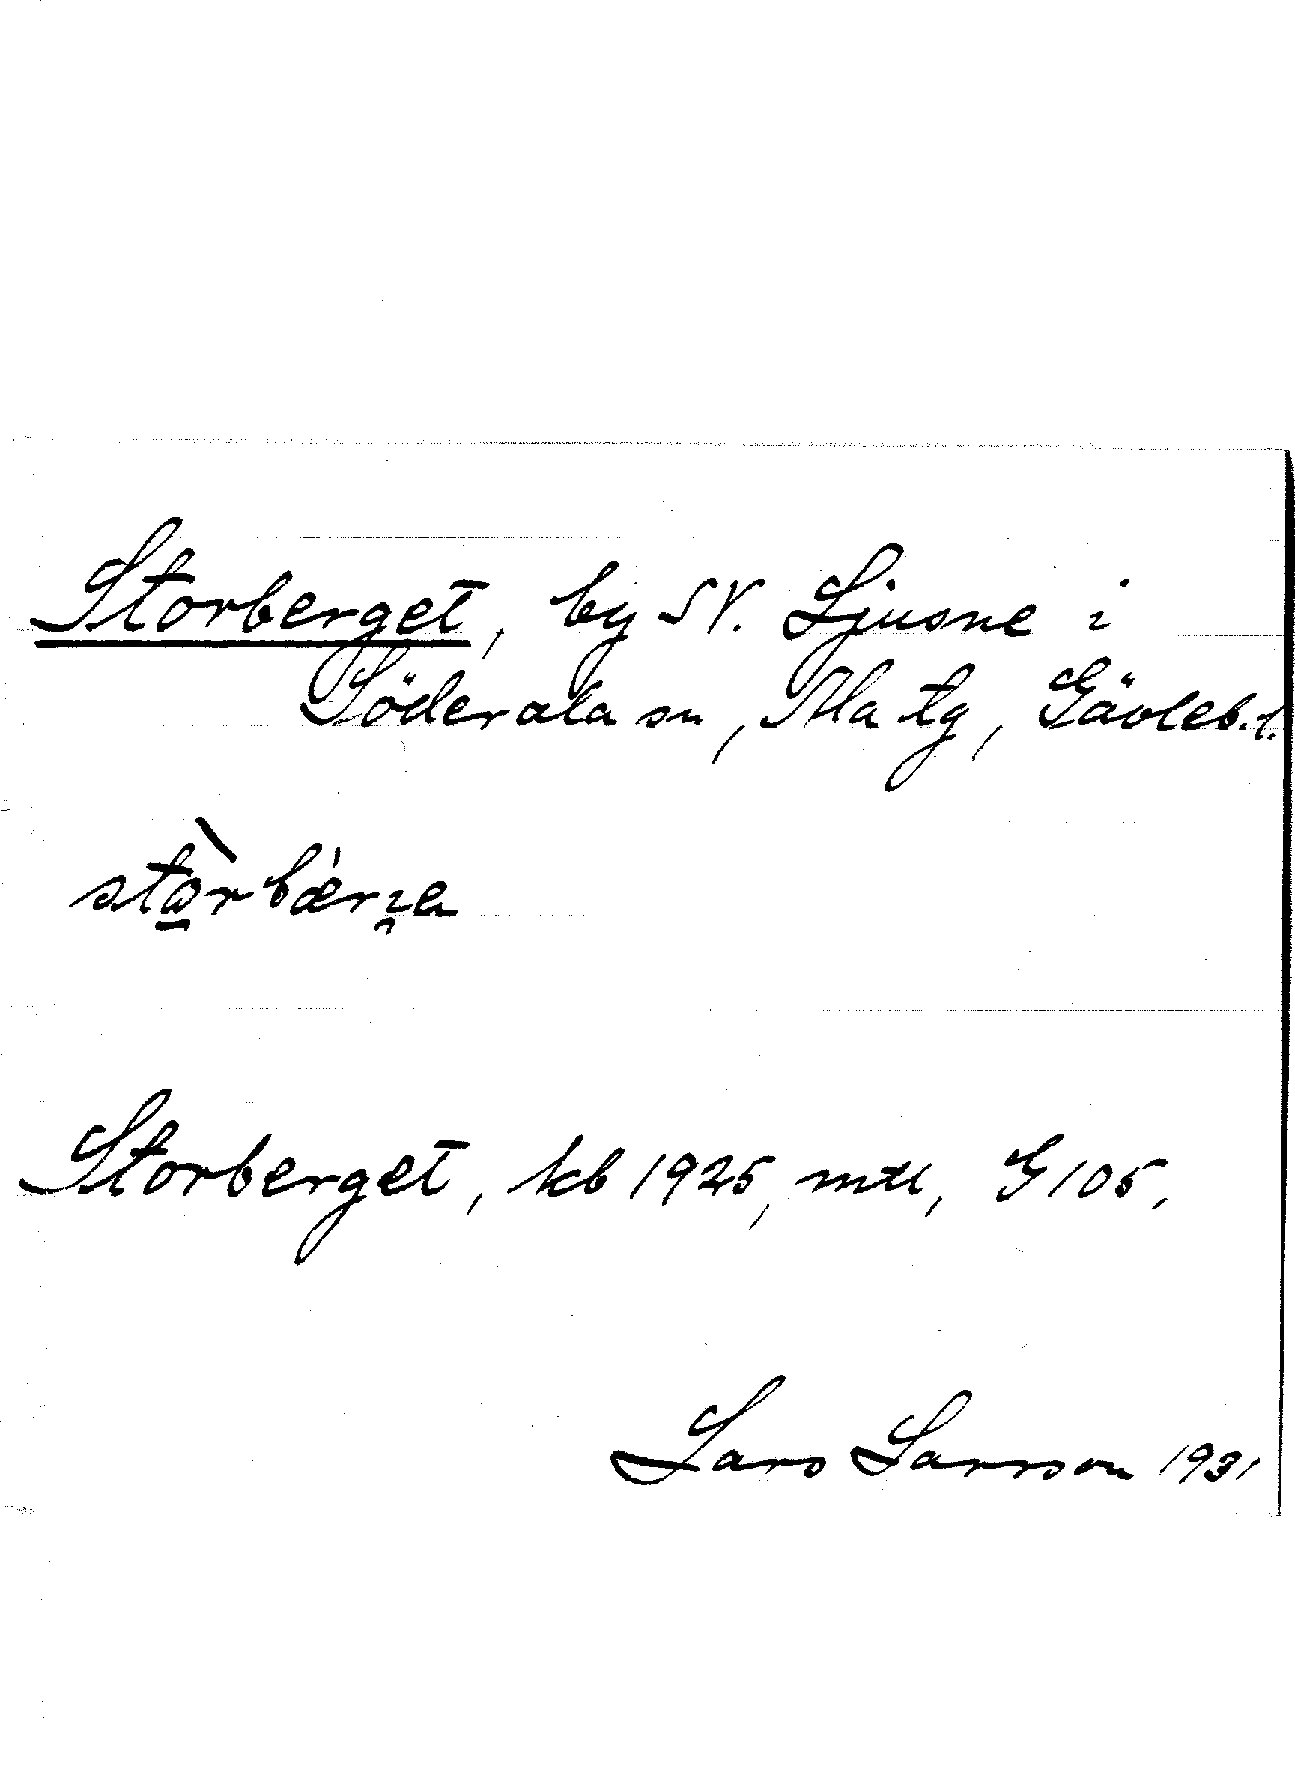 Storberget, by SV. Ljusne i
Söderala sn, Ala tg, Gävleb.l.
Storberget, kb 1925, mtl, G 105.
Lars Larsson 1931